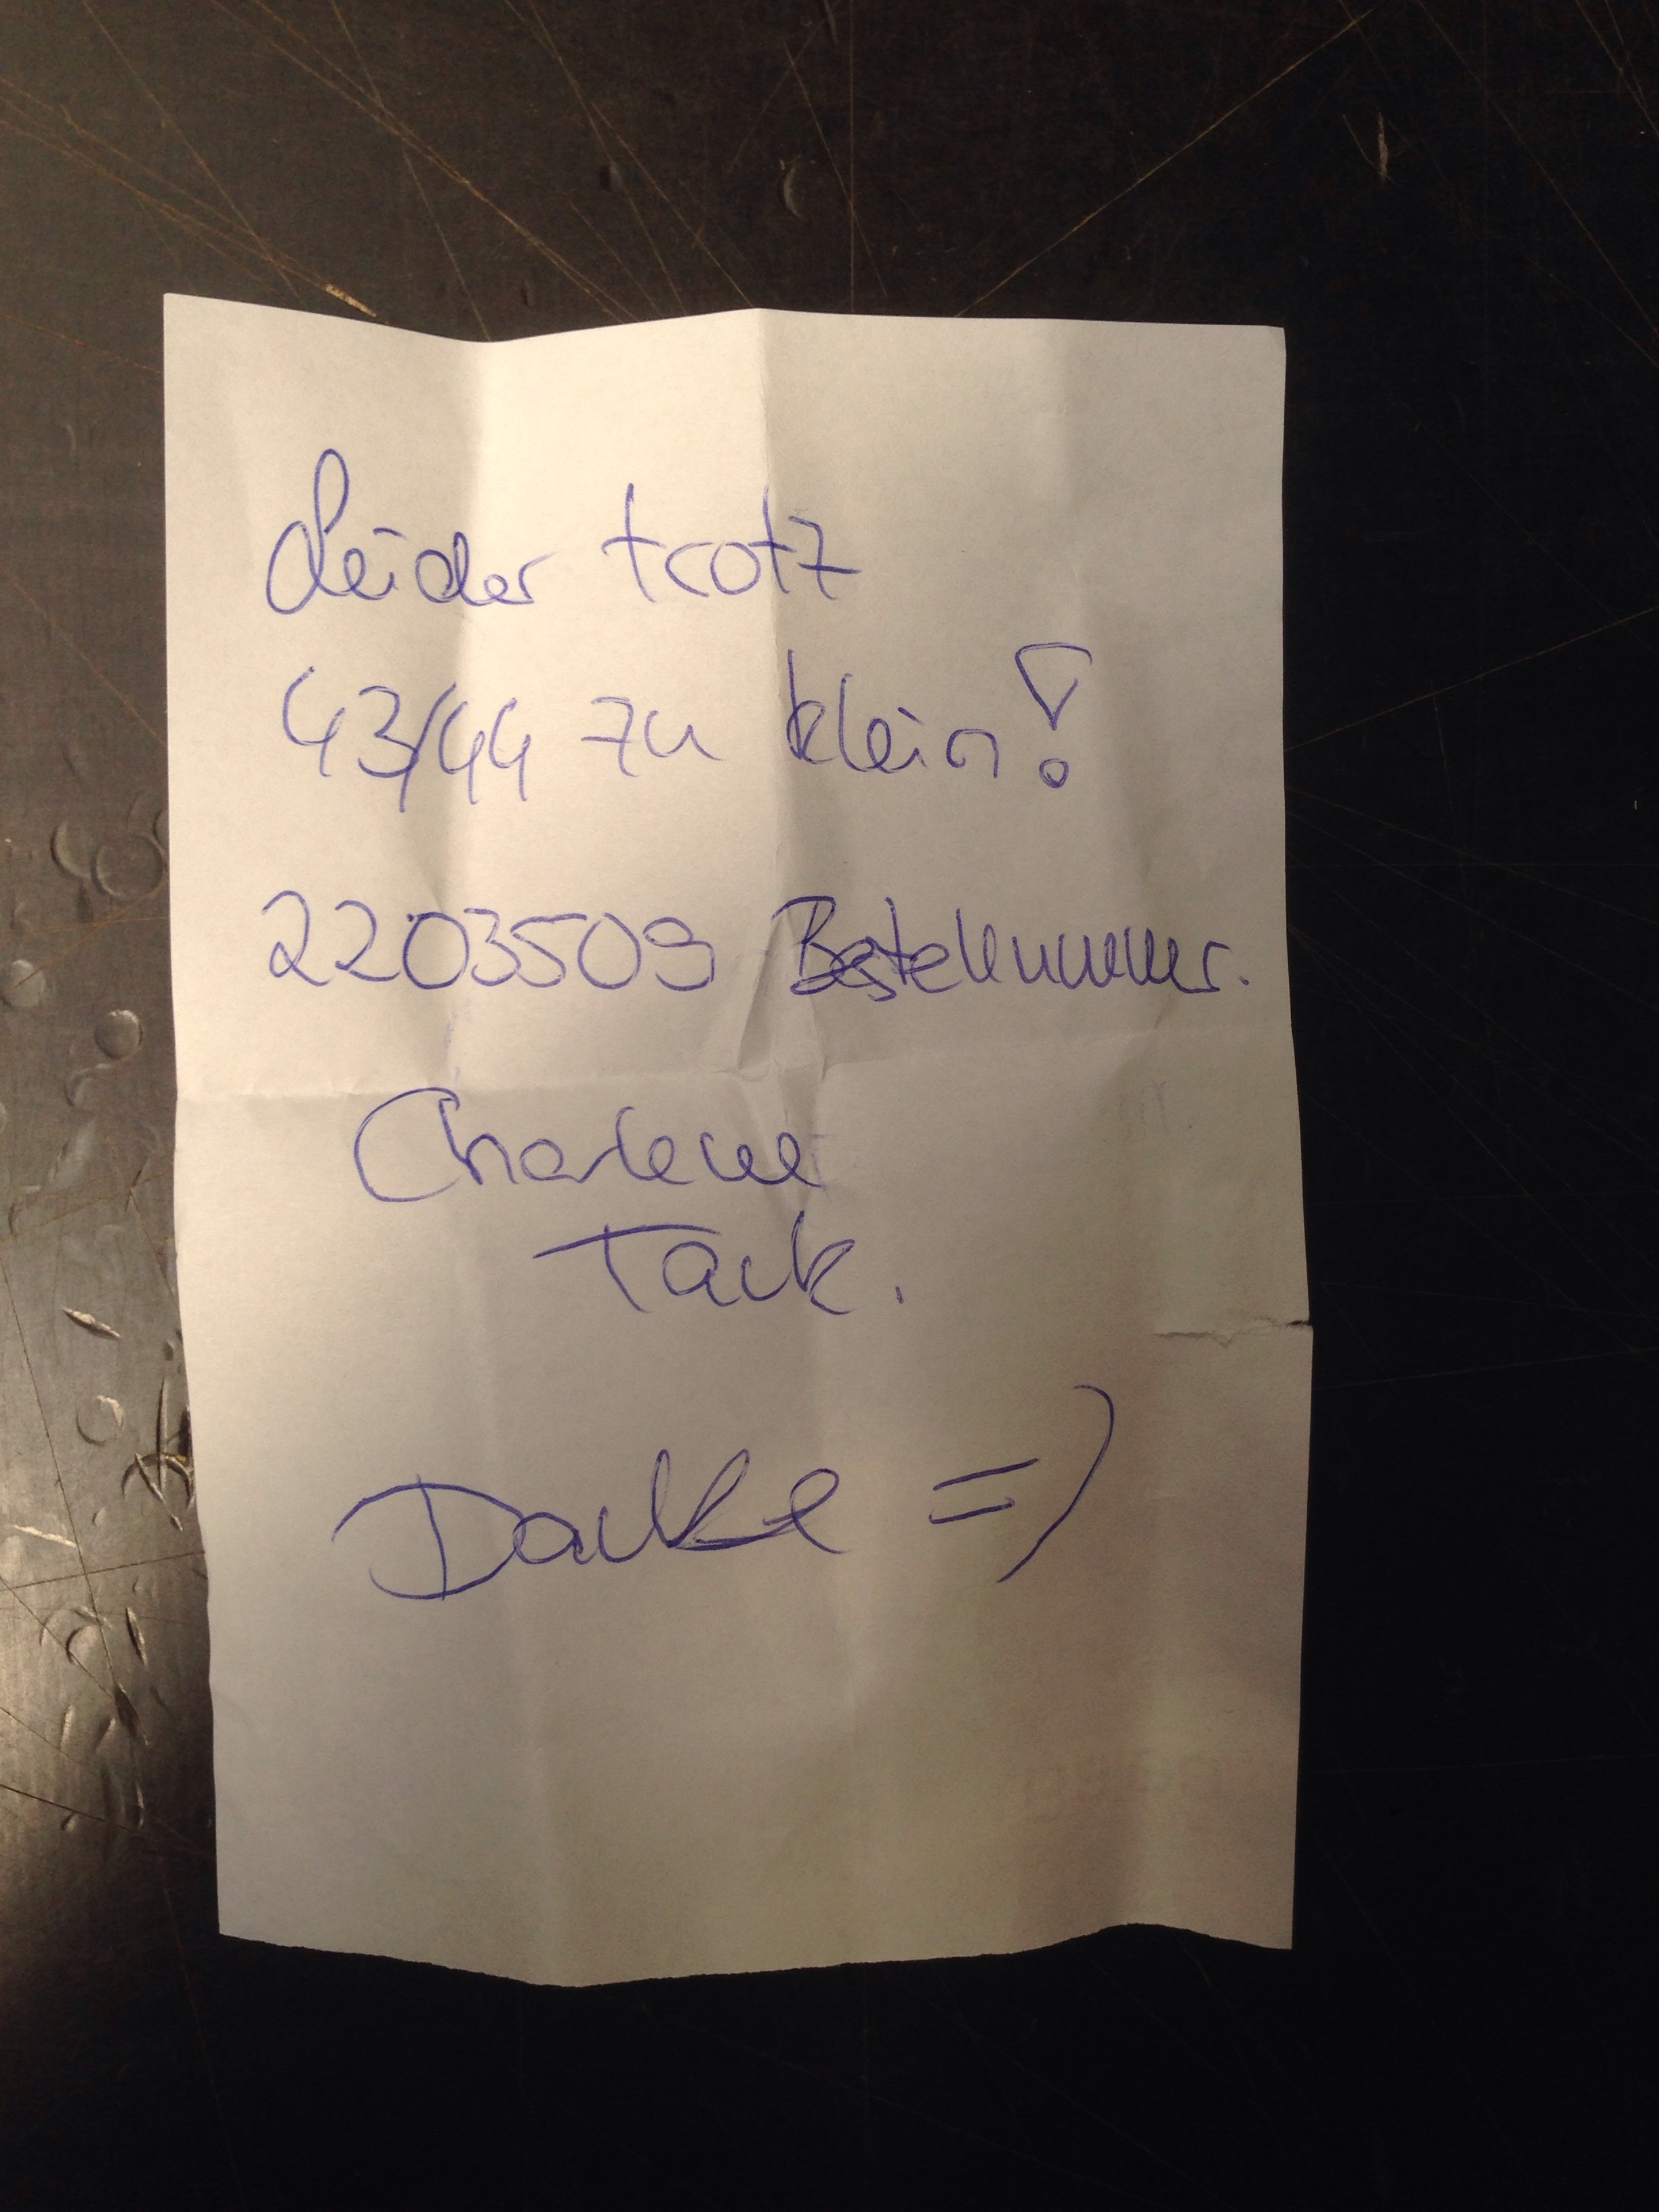 Leider trotz
43/44 zu klein!
2203509 Bestellnummer.
Charlene
Tack.
Danke =)